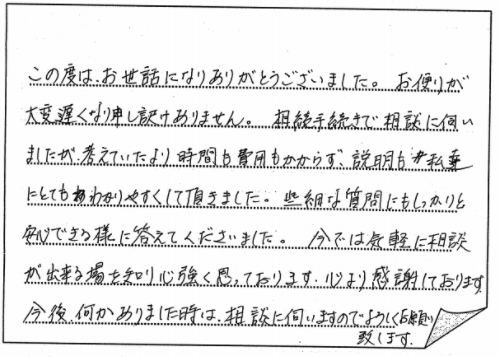 この度は、お世話になりありがとうございました。 お便りが
大変遅くなり申し訳けありません。 相続手続きで相談に伺い
ましたが、考えていたより時間も費用もかからず、説明も私達
にとてもわかりやすくして頂きました。些細な質問にもしっかりと
安心できる様に答えてくださいました。 今では気軽に相談
が出来る場を知り心強く思っております。心より感謝しております
今後、何かありました時は、相談に伺いますのでよろしくお願い
致します。